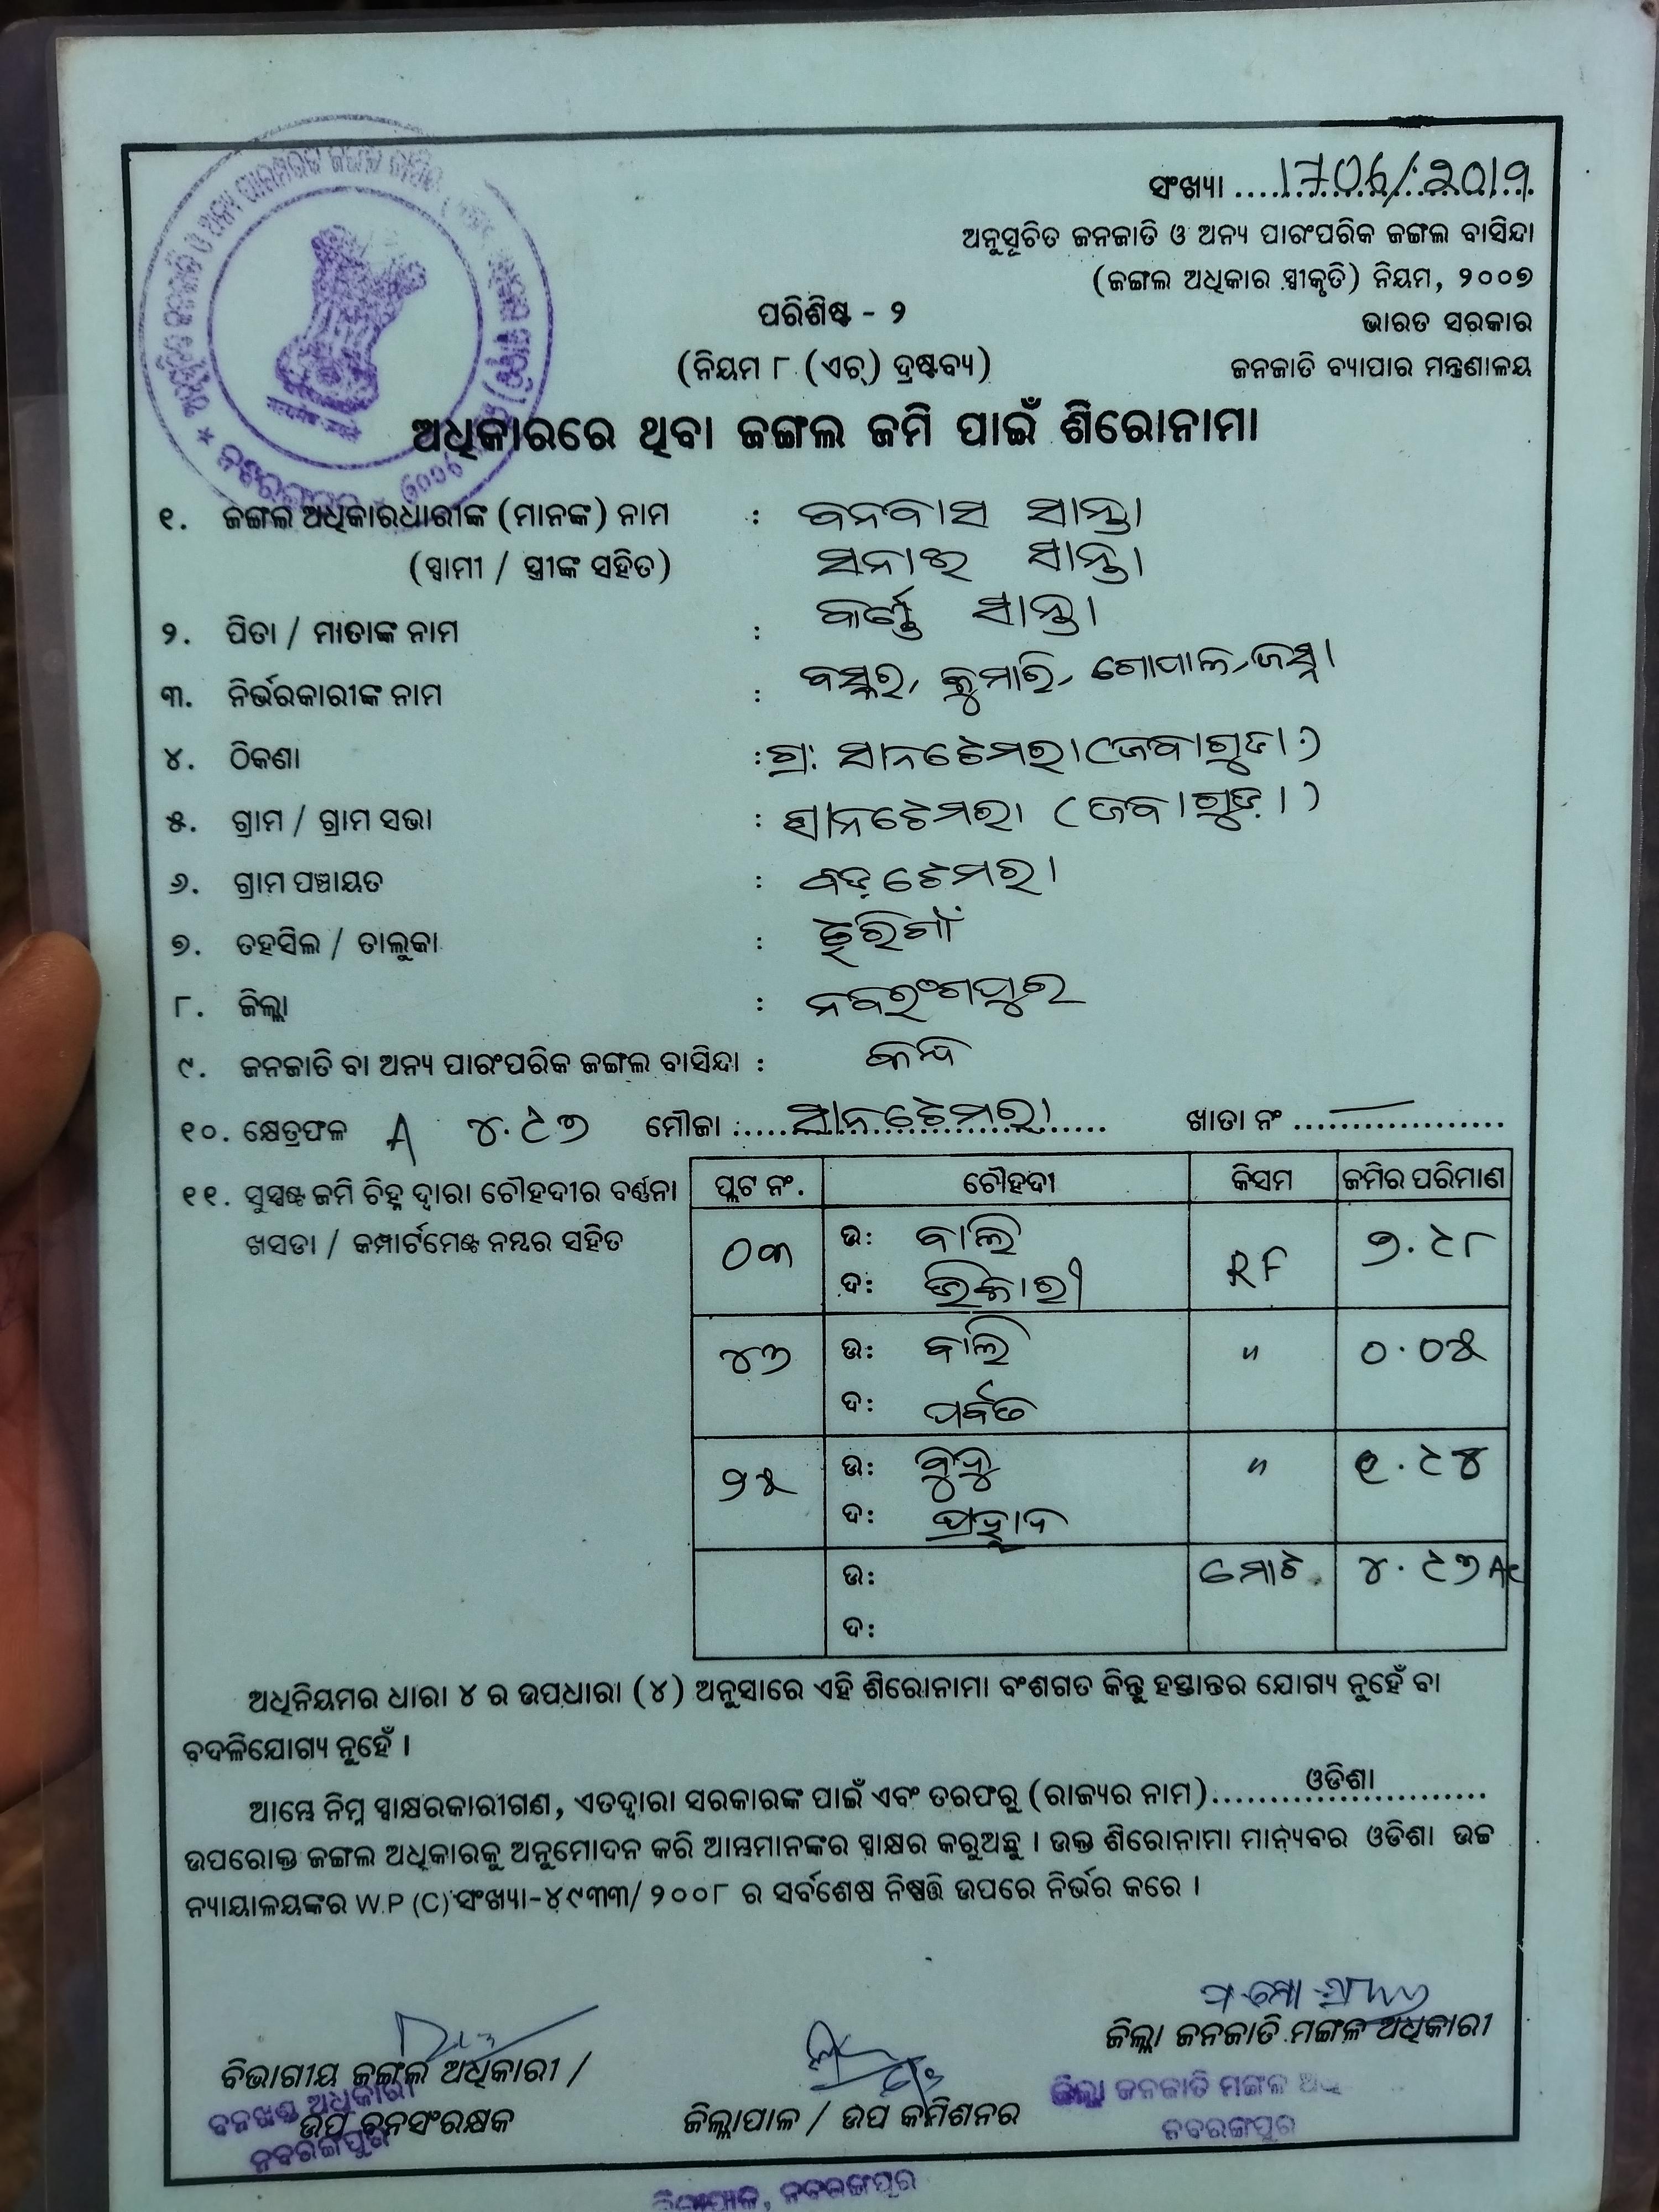 ସଂଖ୍ୟା ....1706/2019
ଅନୁସୂଚିତ ଜନଜାତି ଓ ଅନ୍ୟ ପାରଂପରିକ ଜଙ୍ଗଲ ବାସିନ୍ଦା
(ଜଙ୍ଗଲ ଅଧିକାର ସ୍ୱୀକୃତି) ନିୟମ, ୨୦୦୭
ଭାରତ ସରକାର
ଜନଜାତି ବ୍ୟାପାର ମନ୍ତ୍ରଣାଳୟ
ପରିଶିଷ୍ଟ - ୨
(ନିୟମ ୮ (ଏଚ୍) ଦ୍ରଷ୍ଟବ୍ୟ)
ଅଧିକାରରେ ଥିବା ଜଙ୍ଗଲ ଜମି ପାଇଁ ଶିରୋନାମା
୧. ଜଙ୍ଗଲ ଅଧିକାରଧାରୀଙ୍କ (ମାନଙ୍କ) ନାମ : ବନବାସ ସାନ୍ତା
(ସ୍ୱାମୀ / ସ୍ତ୍ରୀଙ୍କ ସହିତ) ସନାଇ ସାନ୍ତା
୨. ପିତା / ମାତାଙ୍କ ନାମ : କର୍ଣ୍ଣ ସାନ୍ତା
୩. ନିର୍ଭରକାରୀଙ୍କ ନାମ : ବସ୍କର, କୁମାରି, ଗୋପାଳ,
୪. ଠିକଣା : ଗ୍ରା: ସାନଟେମରା (ଜବାଗୁଡା)
୫. ଗ୍ରାମ / ଗ୍ରାମ ସଭା : ସାନଟେମରା (ଜବାଗୁଡ଼ା)
୬. ଗ୍ରାମ ପଞ୍ଚାୟତ : ବଡ଼ଟେମରା
୭. ତହସିଲ / ତାଲୁକା : ଝରିଗାଁ
୮. ଜିଲ୍ଲା : ନବରଂଗପୁର
୯. ଜନଜାତି ବା ଅନ୍ୟ ପାରଂପରିକ ଜଙ୍ଗଲ ବାସିନ୍ଦା : କନ୍ଧ
୧୦. କ୍ଷେତ୍ରଫଳ A ୪.୯୭ ମୌଜା : ସାନଟେମରା ଖାତା ନଂ ..................
୧୧. ସୁସ୍ପଷ୍ଟ ଜମି ଚିହ୍ନ ଦ୍ୱାରା ଚୌହଦୀର ବର୍ଣ୍ଣନା
ଖସଡା / କମ୍ପାର୍ଟମେଣ୍ଟ ନମ୍ବର ସହିତ
ପ୍ଲଟ ନଂ. ଚୌହଦୀ କିସମ ଜମିର ପରିମାଣ
୦୩ ଉ: ବାଲି RF ୨.୯୮
ଦ: ଭିକାରୀ
୪୭ ଉ: ବାଲି " ୦.୦୫
ଦ: ପର୍ବତ
୨୫ ଉ: ବୁଦୁ " ୧.୯୪
ଦ: ପ୍ରହ୍ଲାଦ
ଉ: ମୋଟ ୪.୯୭ Ac
ଦ:
ଅଧିନିୟମର ଧାରା ୪ ର ଉପଧାରା (୪) ଅନୁସାରେ ଏହି ଶିରୋନାମା ବଂଶଗତ କିନ୍ତୁ ହସ୍ତାନ୍ତର ଯୋଗ୍ୟ ନୁହେଁ ବା
ବଦଳିଯୋଗ୍ୟ ନୁହେଁ ।
ଆମ୍ଭେ ନିମ୍ନ ସ୍ୱାକ୍ଷରକାରୀଗଣ, ଏତଦ୍ୱାରା ସରକାରଙ୍କ ପାଇଁ ଏବଂ ତରଫରୁ (ରାଜ୍ୟର ନାମ)..........ଓଡିଶା..........
ଉପରୋକ୍ତ ଜଙ୍ଗଲ ଅଧିକାରକୁ ଅନୁମୋଦନ କରି ଆମ୍ଭମାନଙ୍କର ସ୍ୱାକ୍ଷର କରୁଅଛୁ । ଉକ୍ତ ଶିରୋନାମା ମାନ୍ୟବର ଓଡିଶା ଉଚ୍ଚ
ନ୍ୟାୟାଳୟଙ୍କର W.P (C) ସଂଖ୍ୟା-୪୯୩୩/୨୦୦୮ ର ସର୍ବଶେଷ ନିଷ୍ପତ୍ତି ଉପରେ ନିର୍ଭର କରେ ।
ଜିଲ୍ଲା ଜନଜାତି ମଙ୍ଗଳ ଅଧିକାରୀ
ବିଭାଗୀୟ ଜଙ୍ଗଲ ଅଧିକାରୀ /
ଜିଲ୍ଲା ଜନଜାତି ମଙ୍ଗଳ
ବନଖଣ୍ଡ ଅଧିକାରୀ
ଉପ ବନସଂରକ୍ଷକ
ଜିଲ୍ଲାପାଳ / ଉପ କମିଶନର
ନବରଙ୍ଗପୁର
ନବରଙ୍ଗପୁର
ଜିଲ୍ଲାପାଳ, ନବରଙ୍ଗପୁର